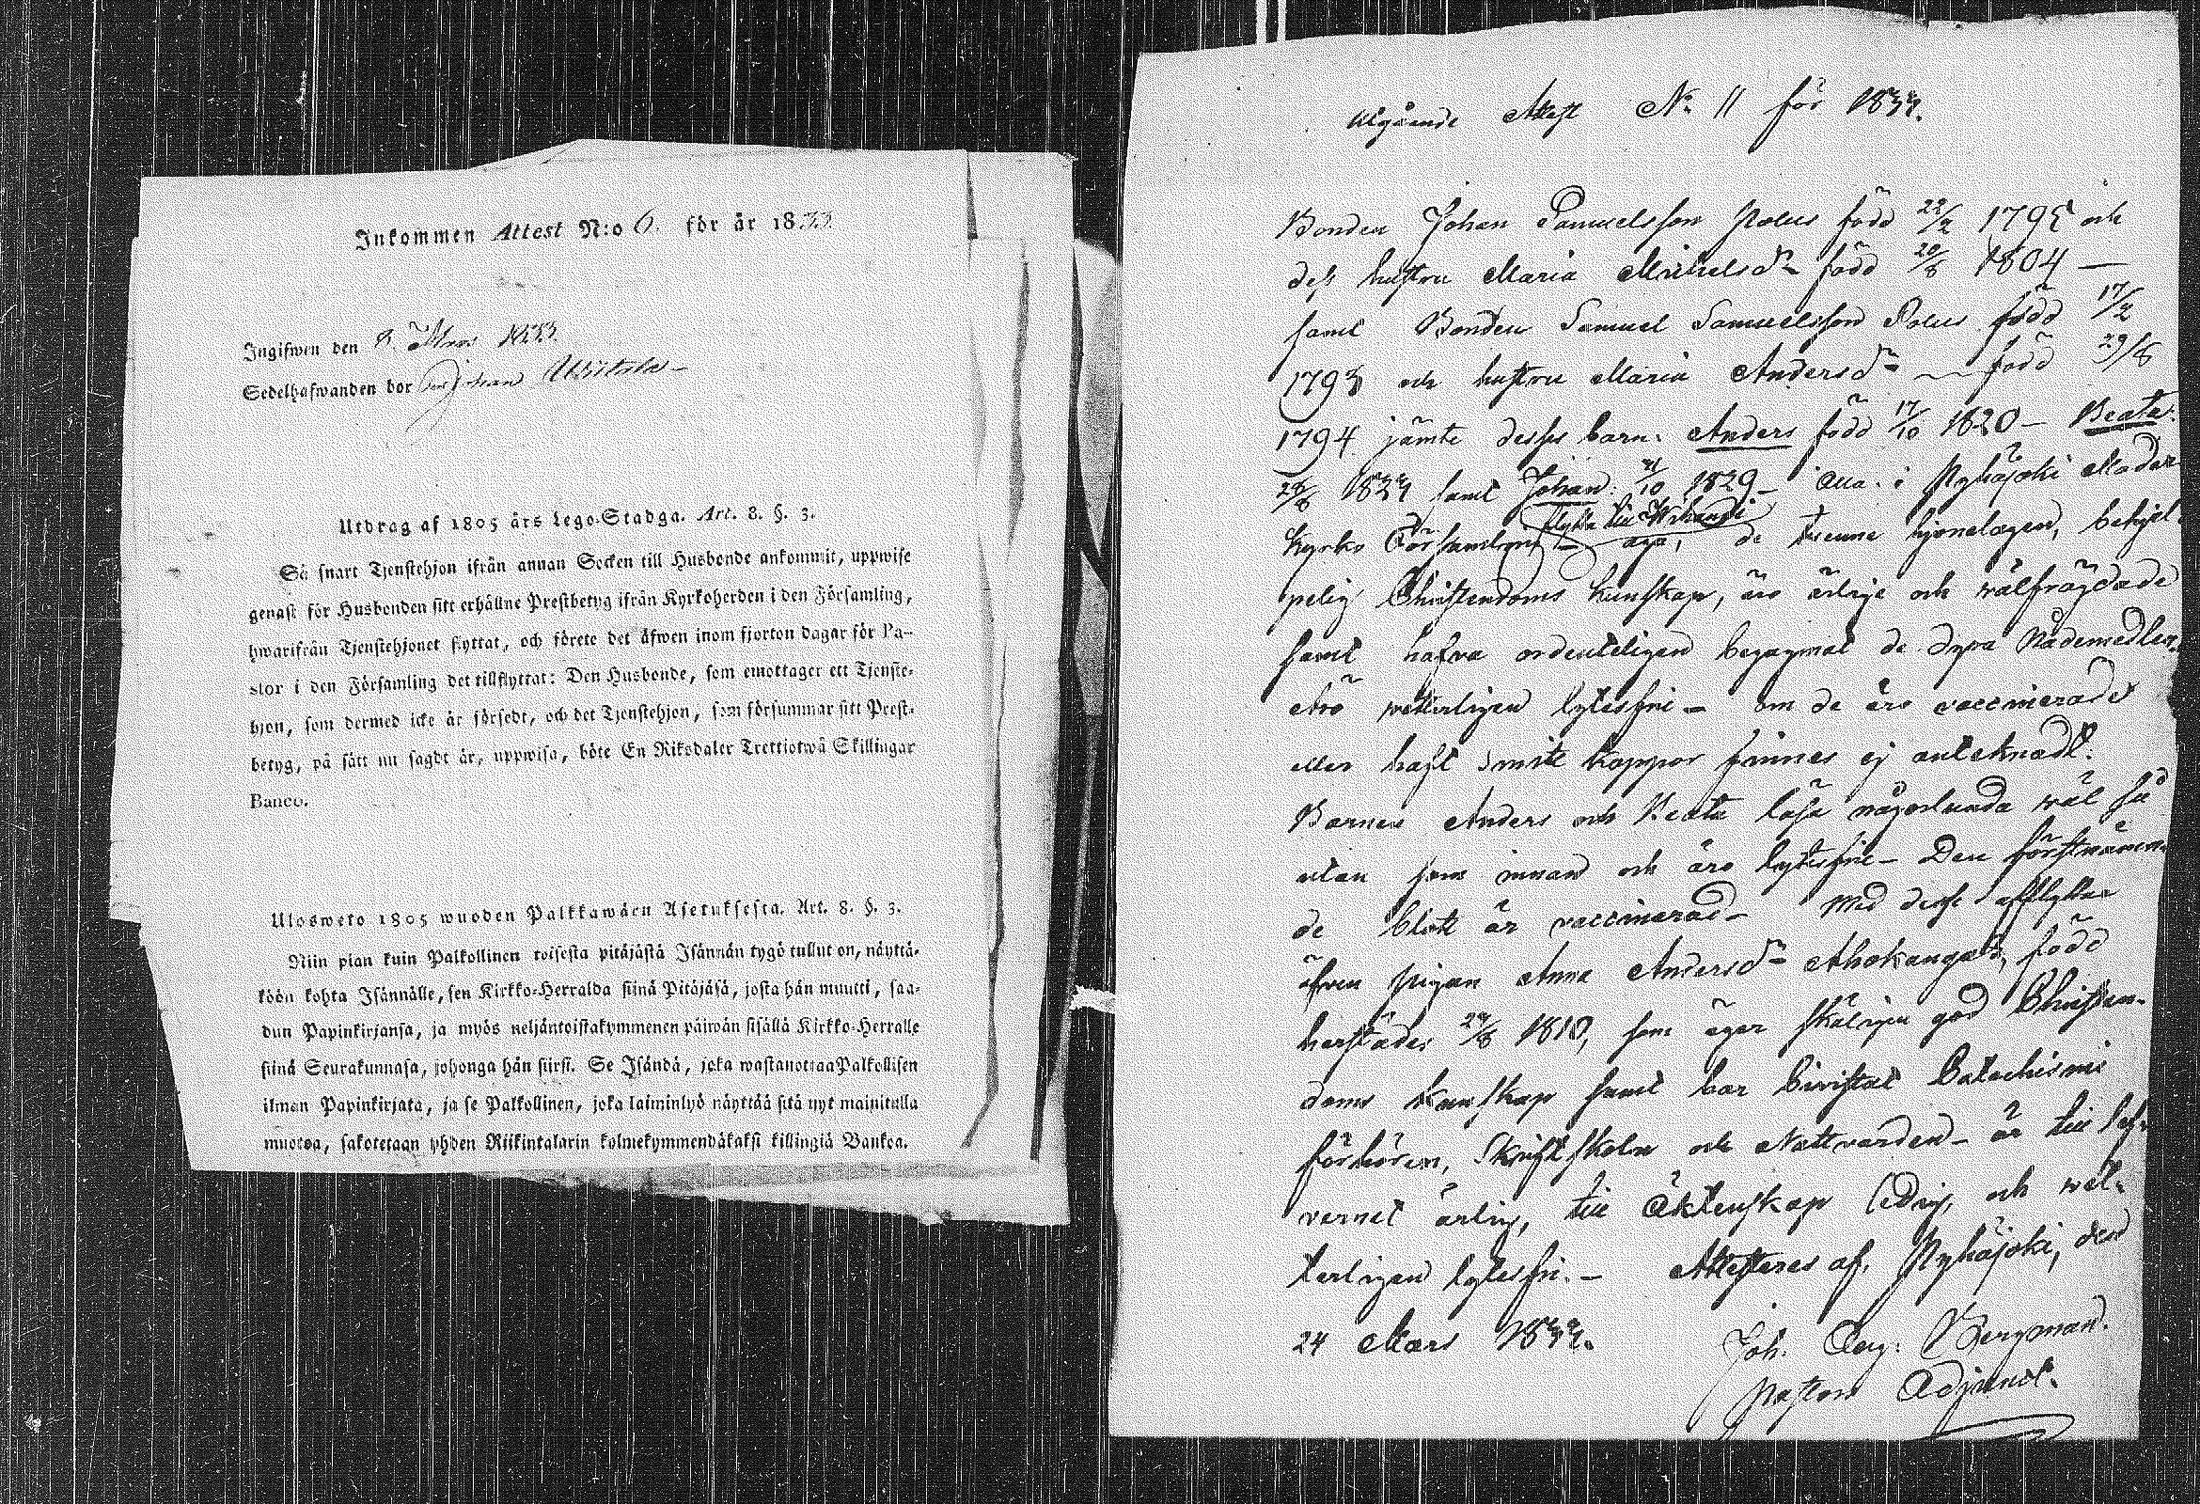 Inkommen Attest N:o 6. för år 1833
Ingifwen den 8. Mars 1833.
Sedelhafwanden bor Johan
Utdrag af 1805 års Lego-Stadga. Art. 8. §. 3.
Så snart Tjenstehjon ifrån annan Socken till Husbonde ankommit, uppwise
genast för Husbonden sitt erhållne Prestbetyg ifrån Kyrkoherden i den Församling,
hwarifrån Tjenstehjonet flyttat, och förete det äfwen inom fjorton dagar för Pa-
stor i den Församling det tillflyttat: Den Husbonde, som emottager ett Tjenste-
hjon, som dermed icke är försedt, och det Tjenstehjon, som försummar sitt Prest-
betyg, på sätt nu sagdt är, uppwisa, böte En Riksdaler Trettiotwå Skillingar
Banco.
Ulosweto 1805 wuoden Palkkawäen Asetuksesta. Art. 8. §. 3.
Niin pian kuin Palkollinen toisesta pitäjästä Isännän tygö tullut on, näyttä-
köön kohta Isännälle, sen Kirkko-Herralda siinä Pitäjäsä, josta hän muutti, saa-
dun Papinkirjansa, ja myös neljäntoistakymmenen päiwän sisällä Kirkko-Herralle
siinä Seurakunnasa, johonga hän siirsi. Se Isändä, joka wastanottaa Palkollisen
ilman Papinkirjata, ja se Palkollinen, joka laiminlyö näyttää sitä nyt mainitulla
muotoa, sakotetaan yhden Riikintalarin kolmekymmendäkaksi killingiä Bankoa.
Utgående Attest No 11 för 1833.
Bonden Johan Samuelsson Polus född 22/2 1795 och
dess hustru Maria Michelsdr född 20/8 1804 —
samt Bonden Samuel Samuelsson Polus född 17/2
1793 och hustru Maria Andersdr — född 29/8
1794 jämte desses barn: Anders född 17/10 1820 – Beata
28/8 1823 samt Johan 21/10 1829 – alla i Pyhäjoki Moder
flytta till
Kyrko Församling äga, de trenne hjonelagen, behjel-
pelig Christendoms kunskap, äro ärlige och wälfrägdade
samt hafva ordenteligen begagnat de dyra Nådemedlen.
Äro wetterligen lytesfrie – om de äro vaccinerade
eller haft Smitt koppor finnes ej antecknadt.
Barnen Anders och Beata läsa någorlunda wäl så
utan som innan och äro lytesfrie – Den förstnämn-
de blott är vaccinerad – Med desse afflyttar
äfven pigan Anna Andersdr Ahokangas, född
härstädes 24/8 1810, som äger skäligen god Christen-
doms kunskap samt har biwistat Catechismi
förhören, Skriftskolan och Nattvarden – är till lef-
vernet ärlig, till Äktenskap ledig, och wet-
terligen lytesfri. – Attesteras af Pyhäjoki, den
24 Mars 1833.
Joh. Aug. Bergman.
Pastors Adjunct.